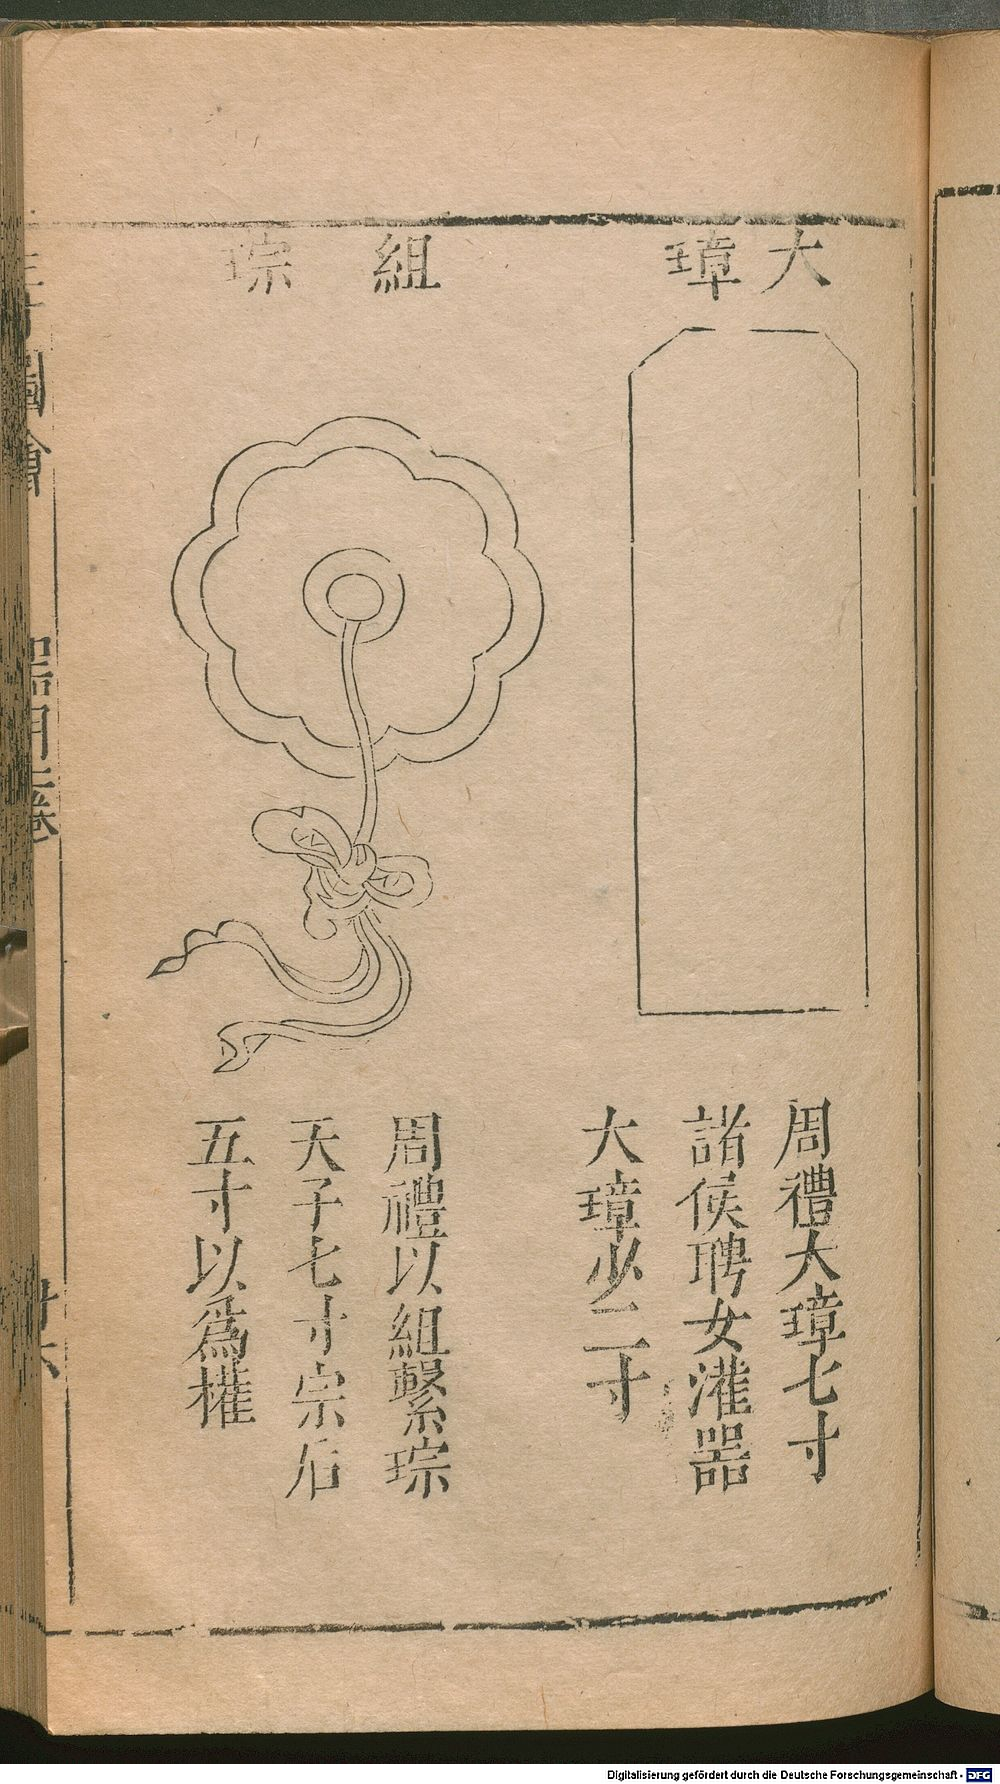 大璋
周禮大璋七寸
諸侯聘女灌器
大璋必二寸
組琮
周禮以組繫琮
天子七寸宗后
五寸以爲權
圖會
器用二卷
Digitalisierung gefördert durch die Deutsche Forschungsgemeinschaft - DFG